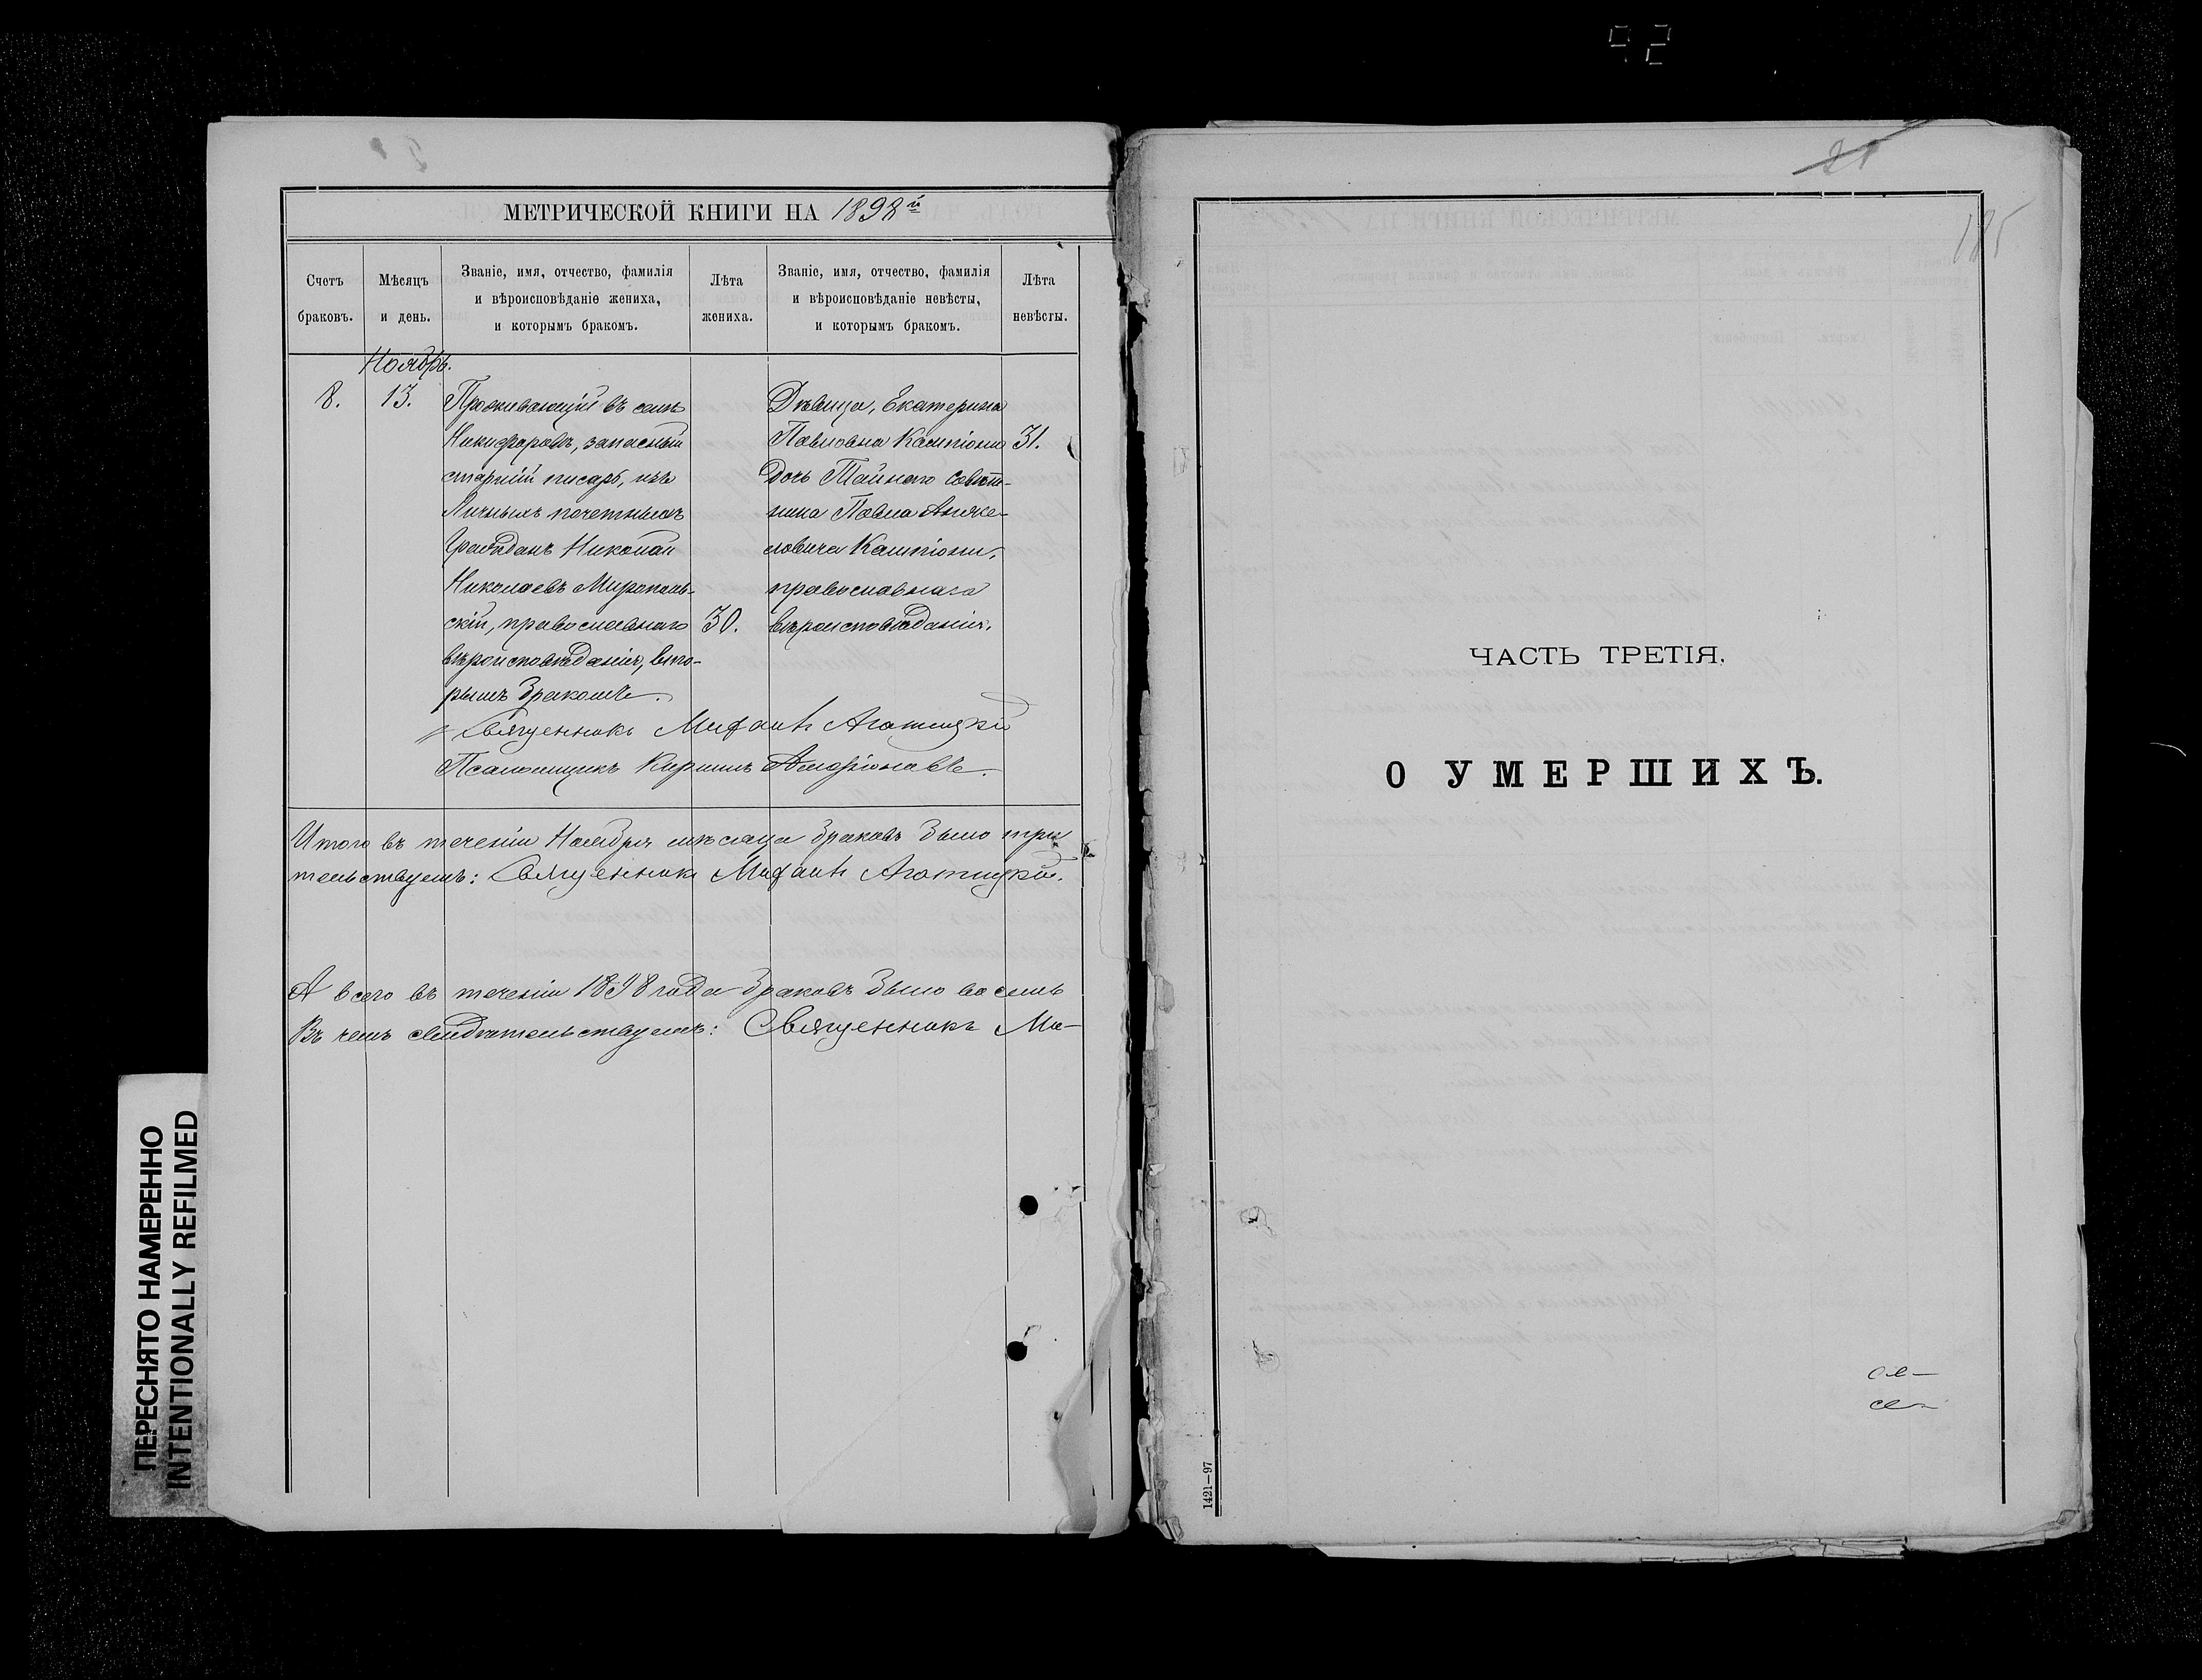 МЕТРИЧЕСКОЙ КНИГИ НА 1898й
Счетъ браковъ.
Мѣсяцъ и день.
Званіе, имя, отчество, фамилія
и вѣроисповѣданіе жениха,
и которымъ бракомъ.
Лѣта жениха.
Званіе, имя, отчество, фамилія
и вѣроисповѣданіе невѣсты,
и которымъ бракомъ.
Лѣта невѣсты.
Ноябрь.
8. 13.
Проживающій въ селѣ
Никифоровѣ, запасный
старшій писарь, изъ
Личныхъ почетныхъ
Гражданъ Николай
Николаевъ Мирополь-
скій, православнаго
вѣроисповѣданія, вто-
рымъ бракомъ.
30.
Дѣвица, Екатерина
Павловна Кампіони
дочь Тайнаго Совѣт-
ника Павла Анже-
ловича Кампіони,
православнаго
вѣроисповѣданія.
31.
Священникъ Агатицкій
Псаломщикъ Кириллъ
Итого въ теченіи Ноября мѣсяца браковъ было три
тельствуемъ: Священникъ Агатицкій.
А всего въ теченіи 1898 года браковъ было восемь
Въ чемъ свидѣтельствуемъ: Священникъ Ми-
ПЕРЕСНЯТО НАМЕРЕННО
INTENTIONALLY REFILMED
21
185
ЧАСТЬ ТРЕТІЯ.
О УМЕРШИХЪ.
1421—97